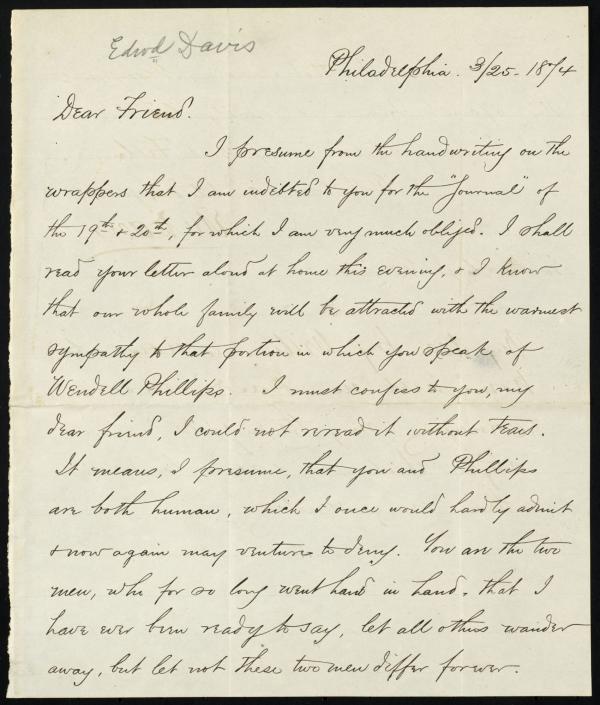 Edwd Davis
Philadelphia. 3/25- 1874
Dear Friend.
I presume from the handwriting on the
wrappers that I am indebted to you for the "Journal" of
the 19th & 20th, for which I am very much obliged. I shall
read your letter aloud at home this evening, & I know
that our whole family will be attracted with the warmest
sympathy to that portion in which you speak of
Wendell Phillips. I must confess to you, my
dear friend, I could not reread it without tears.
It means, I presume, that you and Phillips
are both human, which I once would hardly admit
& now again may venture to deny. You are the two
men, who for so long went hand in hand, that I
have ever been ready to say, let all others wander
away, but let not these two men differ forever.